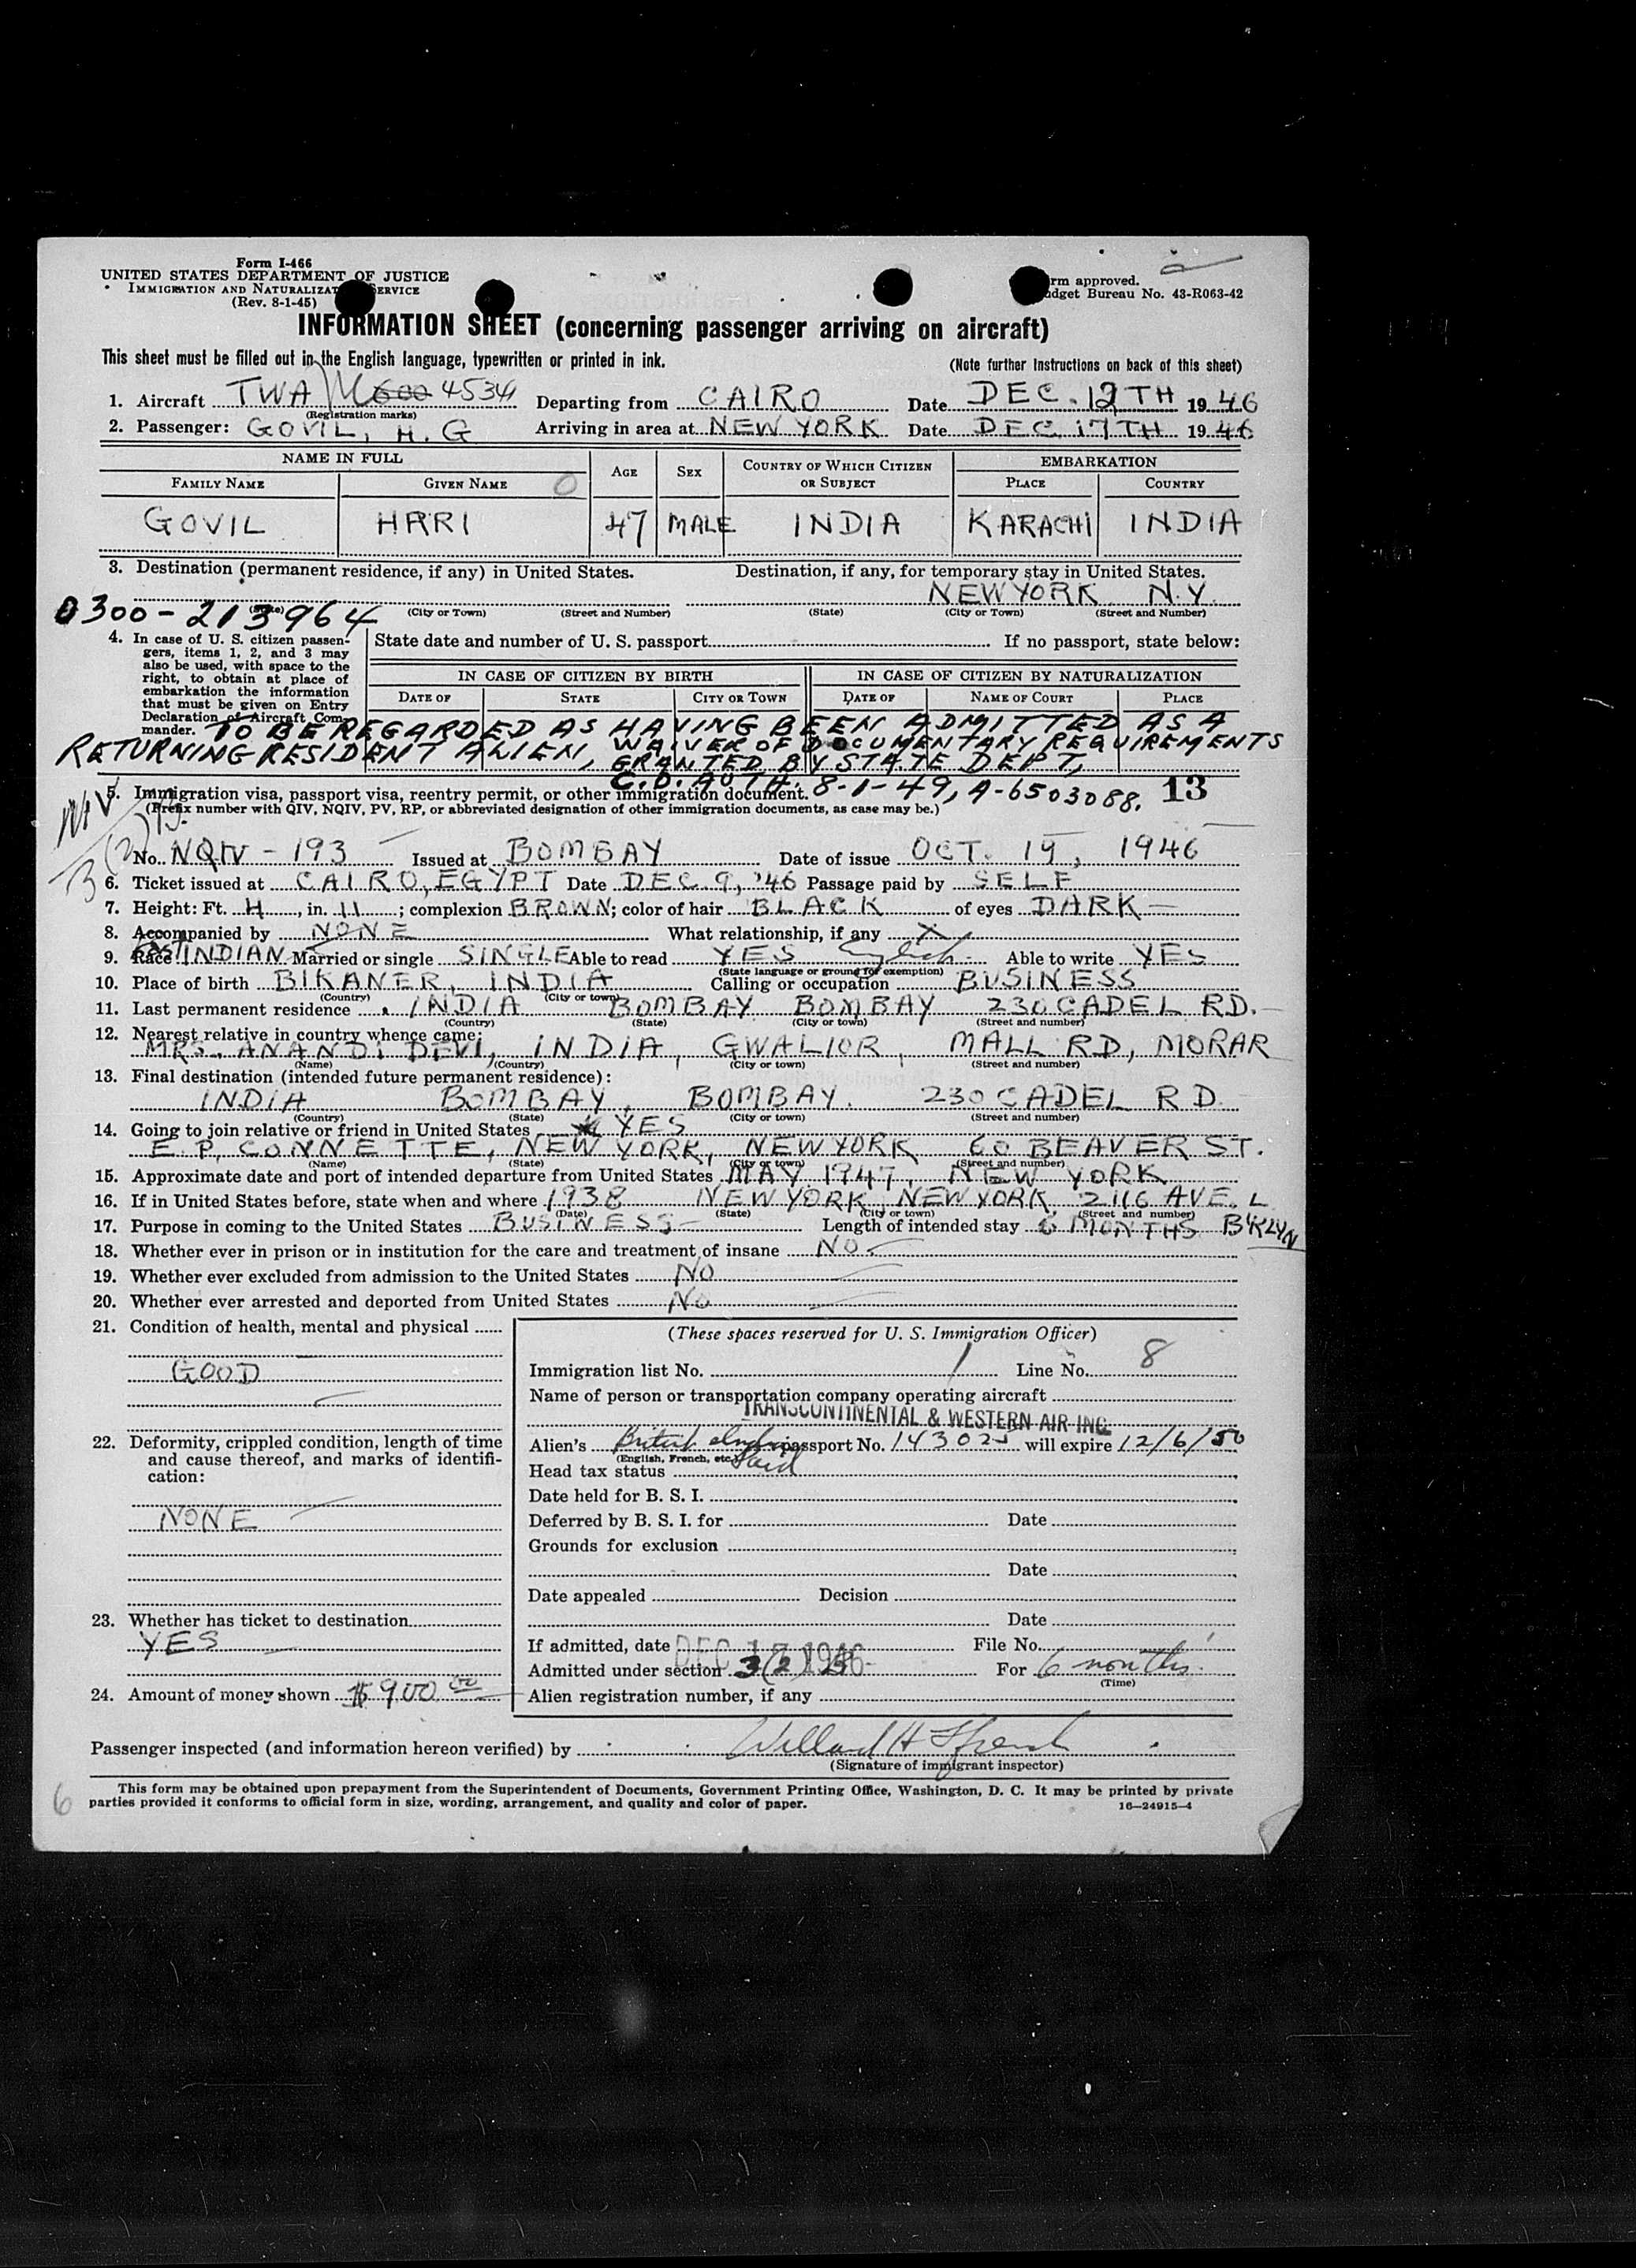 Form I-466
UNITED STATES DEPARTMENT OF JUSTICE
IMMIGRATION AND NATURALIZAT SERVICE
(Rev. 8-1-45)
rm approved.
dget Bureau No. 43-R063-42
INFORMATION SHEET (concerning passenger arriving on aircraft)
This sheet must be filled out in the English language, typewritten or printed in ink. (Note further instructions on back of this sheet)
1. Aircraft TWA 600 4534 Departing from CAIRO Date DEC. 12TH 19 46
(Registration marks)
2. Passenger: GOVIL, H. G Arriving in area at NEW YORK Date DEC 17TH 19 46
NAME IN FULL AGE SEX COUNTRY OF WHICH CITIZEN OR SUBJECT EMBARKATION
FAMILY NAME GIVEN NAME PLACE COUNTRY
GOVIL HARI 47 MALE INDIA KARACHI INDIA
3. Destination (permanent residence, if any) in United States. Destination, if any, for temporary stay in United States.
NEW YORK N.Y.
0300-213964
(State) (City or Town) (Street and Number) (State) (City or Town) (Street and Number)
4. In case of U. S. citizen passen-
gers, items 1, 2, and 3 may
also be used, with space to the
right, to obtain at place of
embarkation the information
that must be given on Entry
Declaration of Aircraft Com-
mander.
State date and number of U. S. passport If no passport, state below:
IN CASE OF CITIZEN BY BIRTH IN CASE OF CITIZEN BY NATURALIZATION
DATE OF STATE CITY OR TOWN DATE OF NAME OF COURT PLACE
TO BE REGARDED AS HAVING BEEN ADMITTED AS A
RETURNING RESIDENT ALIEN, WAIVER OF DOCUMENTARY REQUIREMENTS
GRANTED BY STATE DEPT,
C.O. AUTH. 8-1-49, A-6503088. 13
5. Immigration visa, passport visa, reentry permit, or other immigration document.
(Prefix number with QIV, NQIV, PV, RP, or abbreviated designation of other immigration documents, as case may be.)
No. NQIV - 193 Issued at BOMBAY Date of issue OCT. 19, 1946
6. Ticket issued at CAIRO, EGYPT Date DEC 9, '46 Passage paid by SELF
7. Height: Ft. 4, in. 11; complexion BROWN; color of hair BLACK of eyes DARK
8. Accompanied by NONE What relationship, if any X
9. Race EAST INDIAN Married or single SINGLE Able to read YES English Able to write YES
(State language or ground for exemption)
10. Place of birth BIKANER, INDIA Calling or occupation BUSINESS
(Country) (City or town)
11. Last permanent residence INDIA BOMBAY BOMBAY 230 CADEL RD.
(Country) (State) (City or town) (Street and number)
12. Nearest relative in country whence came:
MRS. ANANDI DEVI, INDIA, GWALIOR, MALL RD, MORAR
(Name) (Country) (City or town) (Street and number)
13. Final destination (intended future permanent residence):
INDIA BOMBAY, BOMBAY. 230 CADEL RD
(Country) (State) (City or town) (Street and number)
14. Going to join relative or friend in United States YES
E. P. CONNETTE, NEW YORK, NEW YORK 60 BEAVER ST.
(Name) (State) (City or town) (Street and number)
15. Approximate date and port of intended departure from United States MAY 1947, NEW YORK
16. If in United States before, state when and where 1938 NEW YORK NEW YORK 2116 AVE. L
(Date) (State) (City or town) (Street and number)
17. Purpose in coming to the United States BUSINESS Length of intended stay 6 MONTHS B'KLYN
18. Whether ever in prison or in institution for the care and treatment of insane NO
19. Whether ever excluded from admission to the United States NO
20. Whether ever arrested and deported from United States NO
21. Condition of health, mental and physical
GOOD
22. Deformity, crippled condition, length of time
and cause thereof, and marks of identifi-
cation:
NONE
23. Whether has ticket to destination
YES
24. Amount of money shown $900.00
(These spaces reserved for U. S. Immigration Officer)
Immigration list No. 1 Line No. 8
Name of person or transportation company operating aircraft
TRANSCONTINENTAL & WESTERN AIR INC.
Alien's British Indian passport No. 143025 will expire 12/6/50
(English, French, etc.)
Head tax status Paid
Date held for B. S. I.
Deferred by B. S. I. for Date
Grounds for exclusion
Date
Date appealed Decision
Date
If admitted, date DEC 17 1946 File No.
Admitted under section 3(2) For 6 months
(Time)
Alien registration number, if any
Passenger inspected (and information hereon verified) by Willard H
(Signature of immigrant inspector)
This form may be obtained upon prepayment from the Superintendent of Documents, Government Printing Office, Washington, D. C. It may be printed by private
parties provided it conforms to official form in size, wording, arrangement, and quality and color of paper. 16—24915-4
6